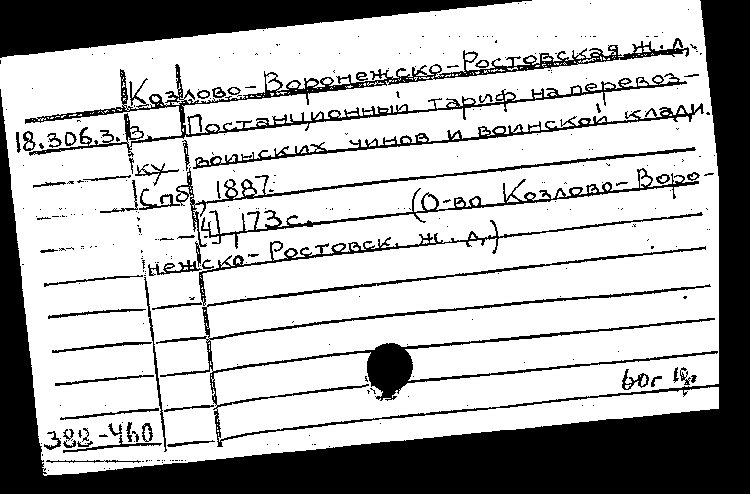 Козлово-Воронежско-Ростовская ж.д.
18.306.3.3. Постанционный тариф на перевоз-
ку воинских чинов и воинской клади.
Спб, 1887.
[4], 173 с. (О-во Козлово-Воро-
нежско-Ростовск. ж. д.)
60г
388-460